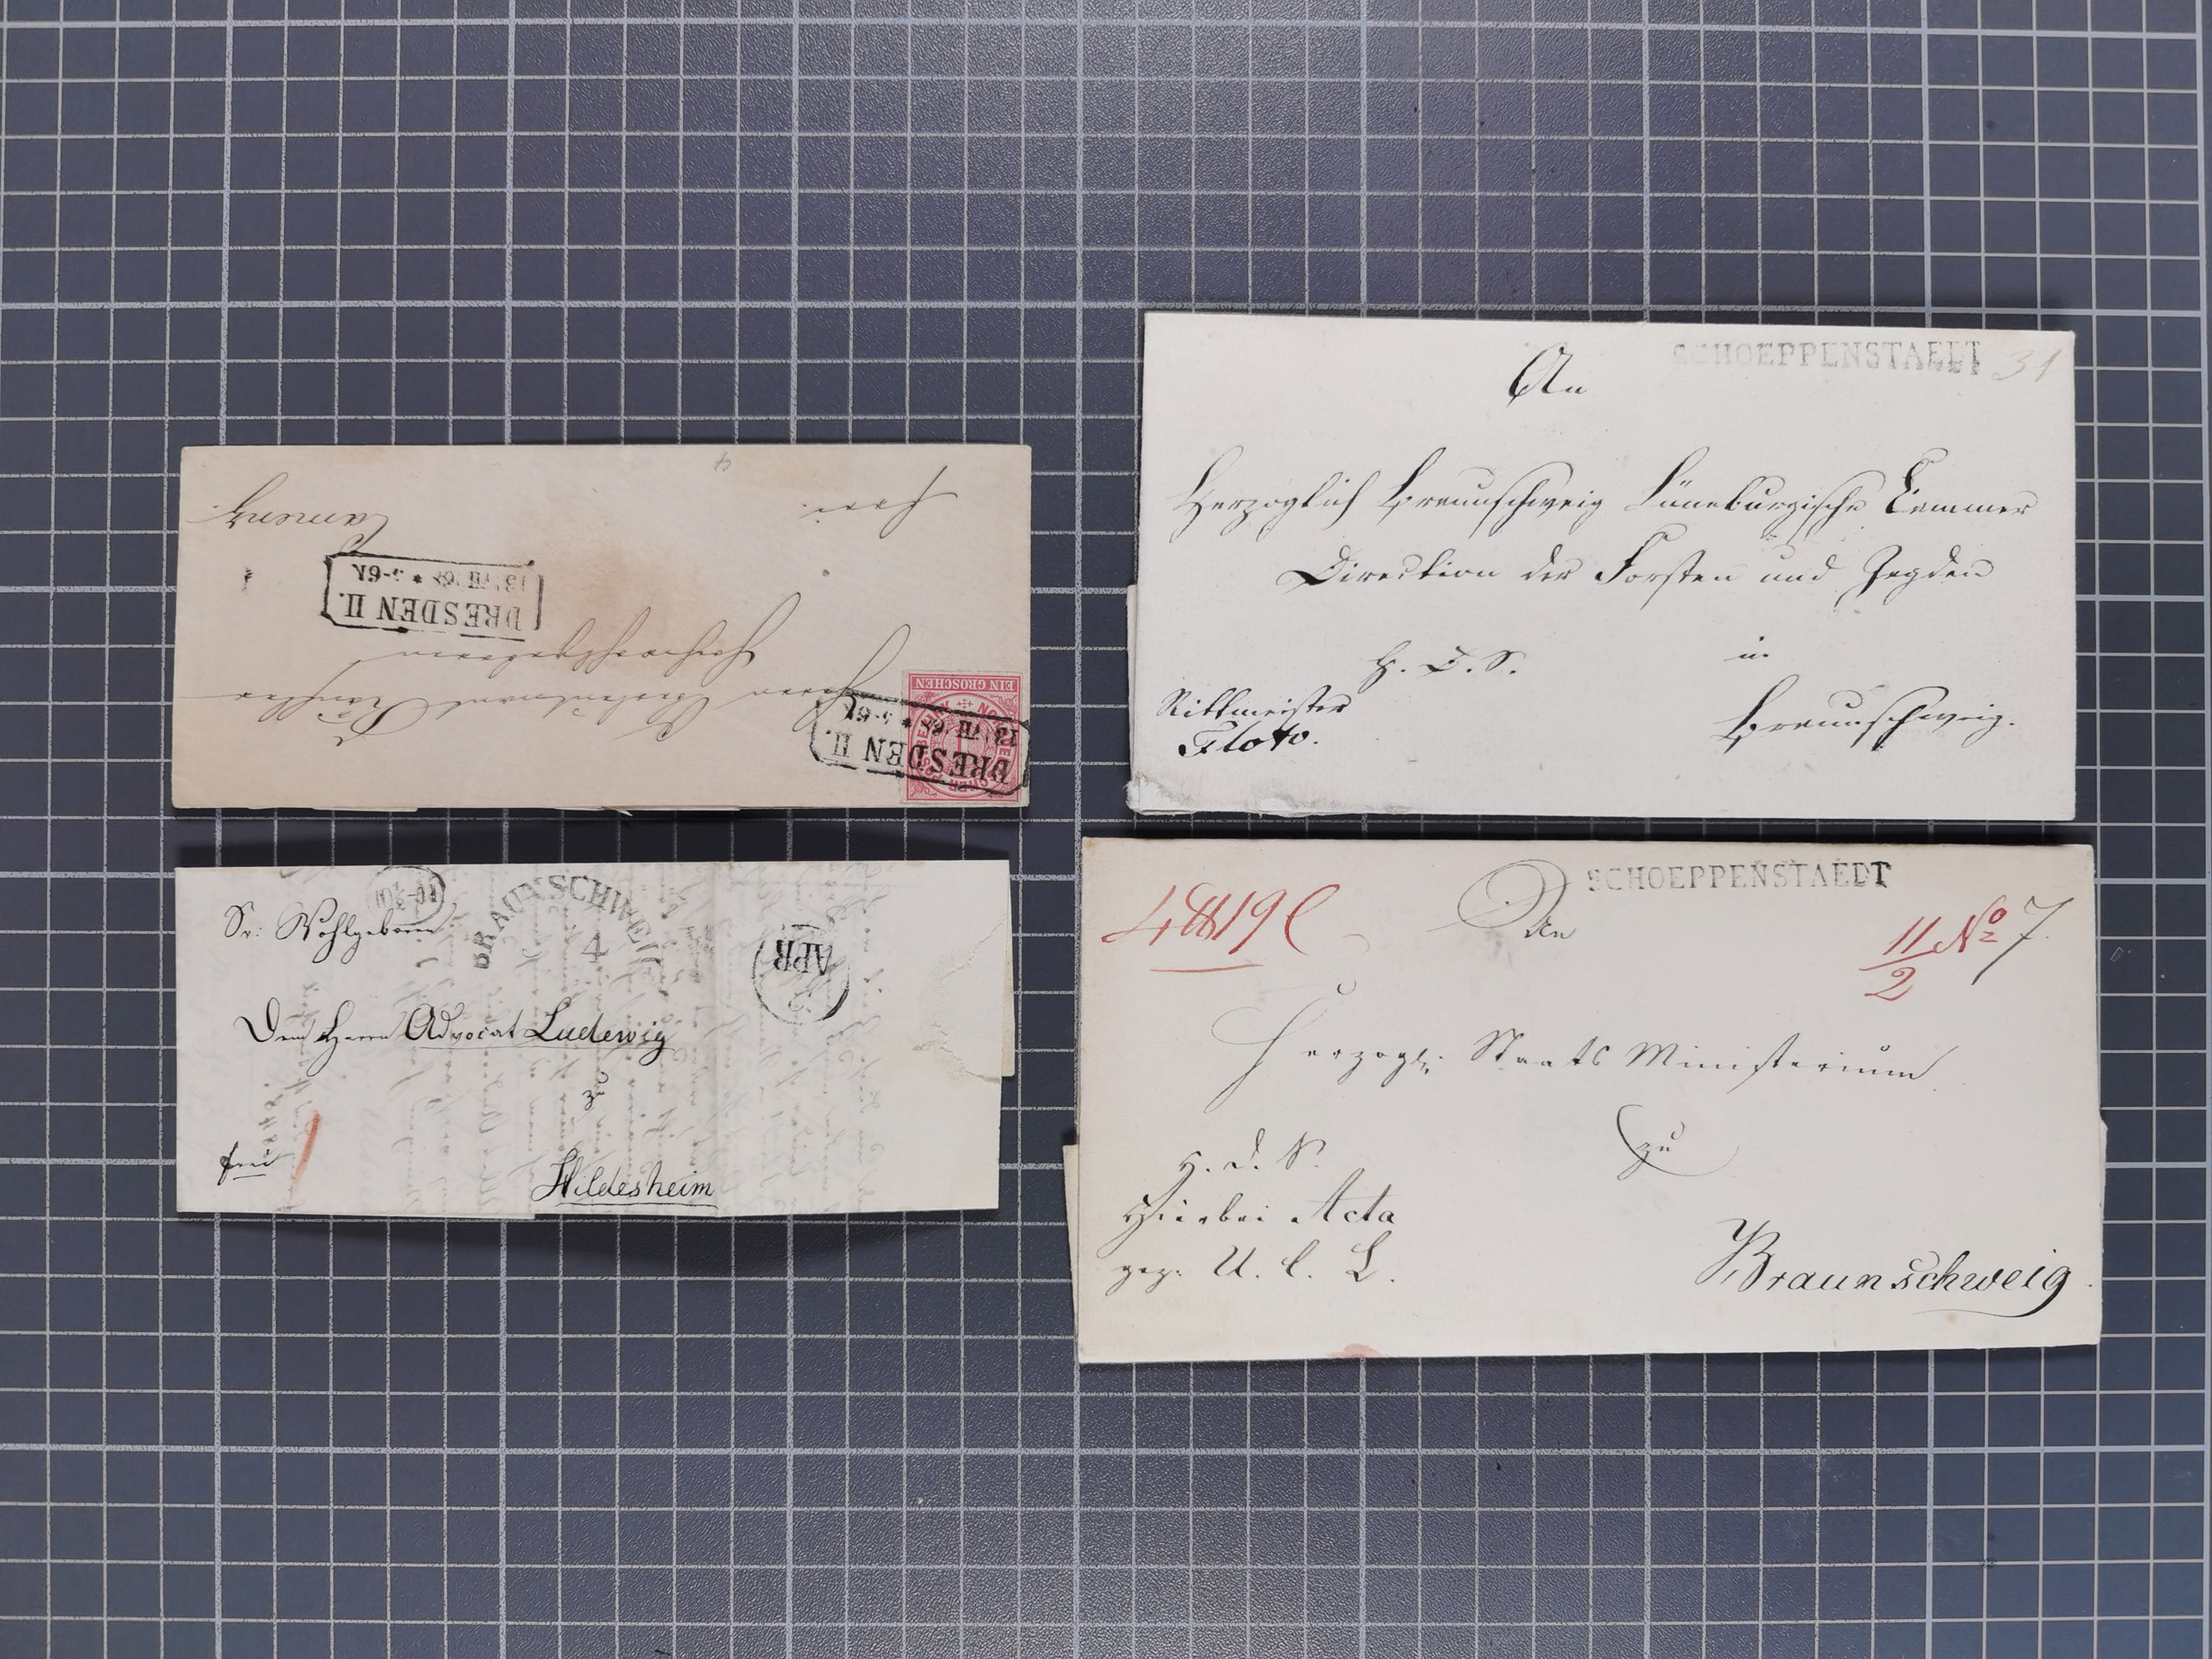 Herrn
Hochwohlgeboren
frei.
Camenz.
4
DRESDEN II.
13 VII 68 * 5-6N
DRESDEN II.
13 VII 68 * 5-6N
NORDDEUTSCHER POSTBEZIRK
1
EIN GROSCHEN
SCHOEPPENSTAEDT
31
An
Herzoglich Braunschweig Lüneburgische Cammer
Direction der Forsten und Jagden
H. D. S.
in
Rittmeister
Floto.
Braunschweig.
BRAUNSCHWEIG
4
APR
Sr: Wohlgeboren
Dem Herrn Advocat Ludewig
zu
frei
Hildesheim
SCHOEPPENSTAEDT
An
11/2 No 7.
Herzogl: Staats Ministerium
zu
H. D. S.
Hierbei Acta
Braunschweig.